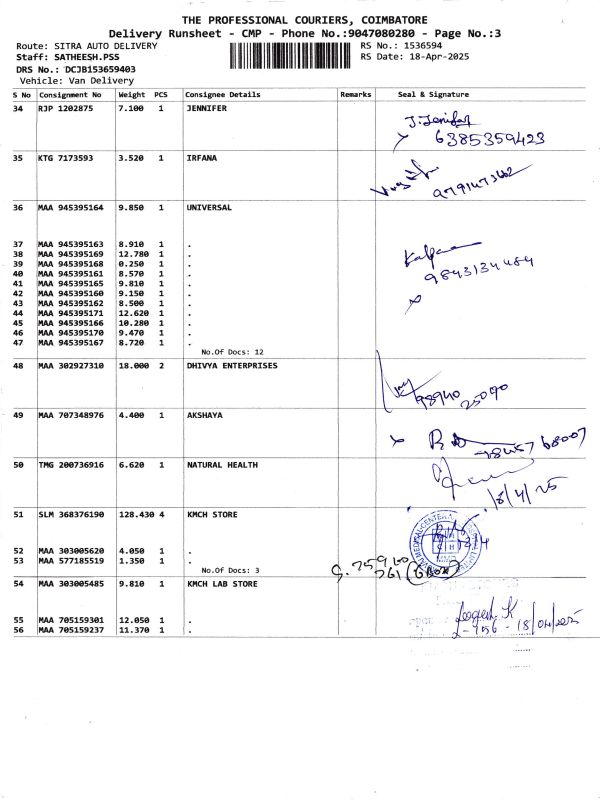 THE PROFESSIONAL COURIERS, COIMBATORE
Delivery Runsheet - CMP - Phone No.:9047080280 - Page No.:3
Route: SITRA AUTO DELIVERY RS No.: 1536594
Staff: SATHEESH.PSS RS Date: 18-Apr-2025
DRS No.: DCJB153659403
Vehicle: Van Delivery
S No Consignment No Weight PCS Consignee Details Remarks Seal & Signature
34 RJP 1202875 7.100 1 JENNIFER
J. Jenifer
6385359423
35 KTG 7173593 3.520 1 IRFANA
36 MAA 945395164 9.850 1 UNIVERSAL
37 MAA 945395163 8.910 1 .
38 MAA 945395169 12.780 1 .
Kalpana
39 MAA 945395168 0.250 1 .
40 MAA 945395161 8.570 1 .
9843134484
41 MAA 945395165 9.810 1 .
42 MAA 945395160 9.150 1 .
43 MAA 945395162 8.500 1 .
44 MAA 945395171 12.620 1 .
45 MAA 945395166 10.280 1 .
46 MAA 945395170 9.470 1 .
47 MAA 945395167 8.720 1 .
No.Of Docs: 12
48 MAA 302927310 18.000 2 DHIVYA ENTERPRISES
98940
25090
49 MAA 707348976 4.400 1 AKSHAYA
9845768007
50 TMG 200736916 6.620 1 NATURAL HEALTH
18/4/25
51 SLM 368376190 128.430 4 KMCH STORE
52 MAA 303005620 4.050 1 .
53 MAA 577185519 1.350 1 .
No.Of Docs: 3
54 MAA 303005485 9.810 1 KMCH LAB STORE
55 MAA 705159301 12.050 1 .
56 MAA 705159237 11.370 1 .
18/04/2025